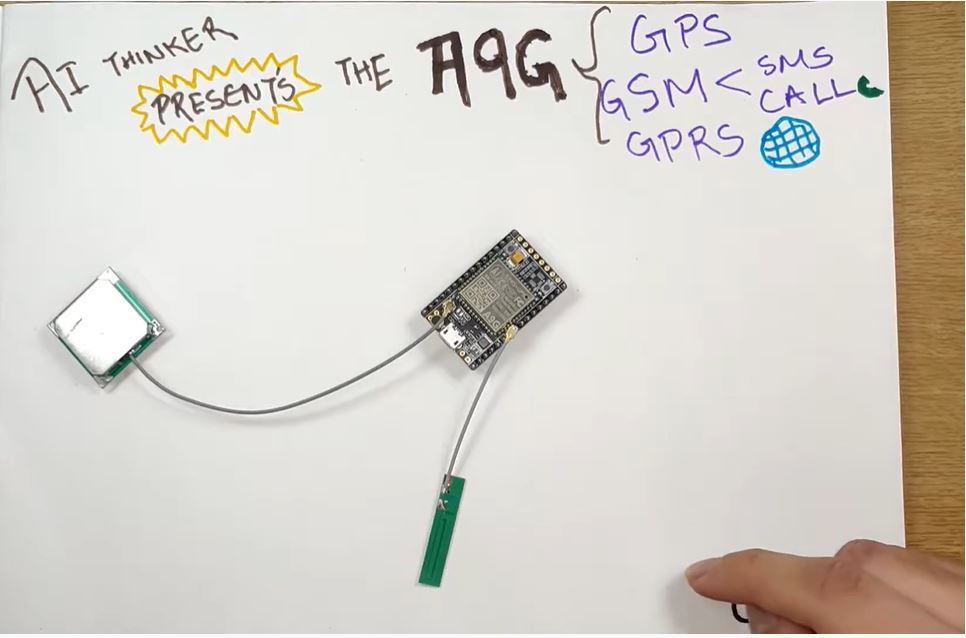 AI THINKER
PRESENTS
THE A9G
GPS
GSM < SMS
CALL
GPRS
A9G